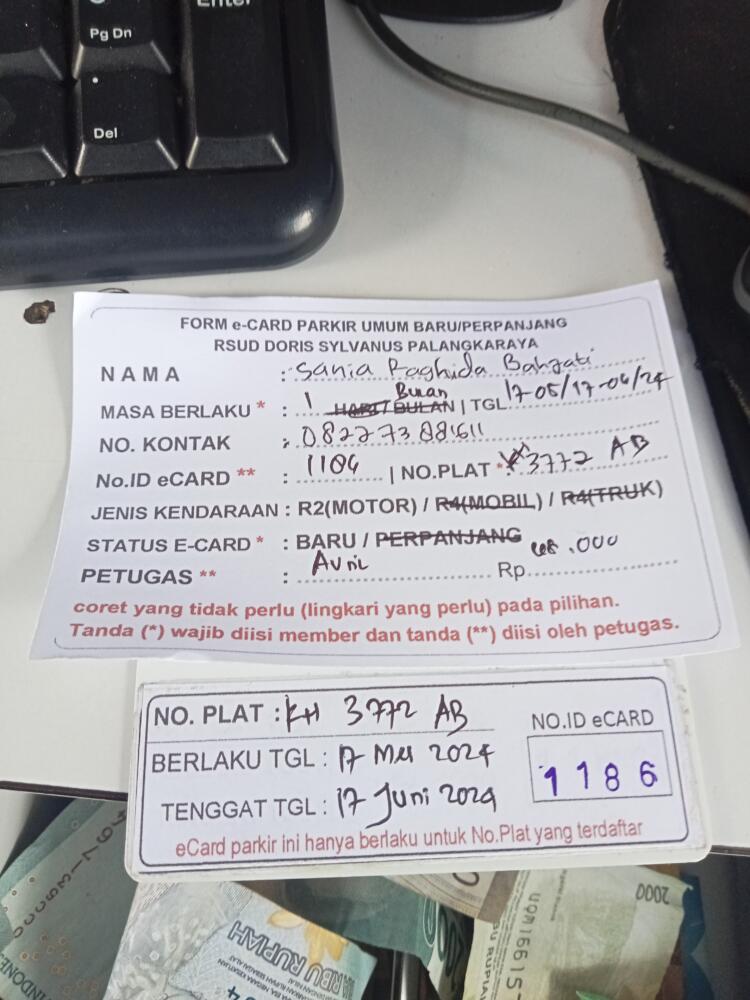 Enter
Pg Dn
Del
FORM e-CARD PARKIR UMUM BARU/PERPANJANG
RSUD DORIS SYLVANUS PALANGKARAYA
NAMA : Sania Raghida Bahzati
MASA BERLAKU * : 1 HARI / BULAN Bulan | TGL 17-05/17-06/24
NO. KONTAK : 082273881611
No.ID eCARD ** : | NO.PLAT * : KH 3772 AB
JENIS KENDARAAN : R2(MOTOR) / R4(MOBIL) / R4(TRUK)
STATUS E-CARD * : BARU / PERPANJANG
PETUGAS ** : Avril Rp .000
coret yang tidak perlu (lingkari yang perlu) pada pilihan.
Tanda (*) wajib diisi member dan tanda (**) diisi oleh petugas.
NO. PLAT : KH 3772 AB
NO.ID eCARD
BERLAKU TGL : 17 Mei 2024
1186
TENGGAT TGL : 17 Juni 2024
eCard parkir ini hanya berlaku untuk No.Plat yang terdaftar
RIBU RUPIAH
2000